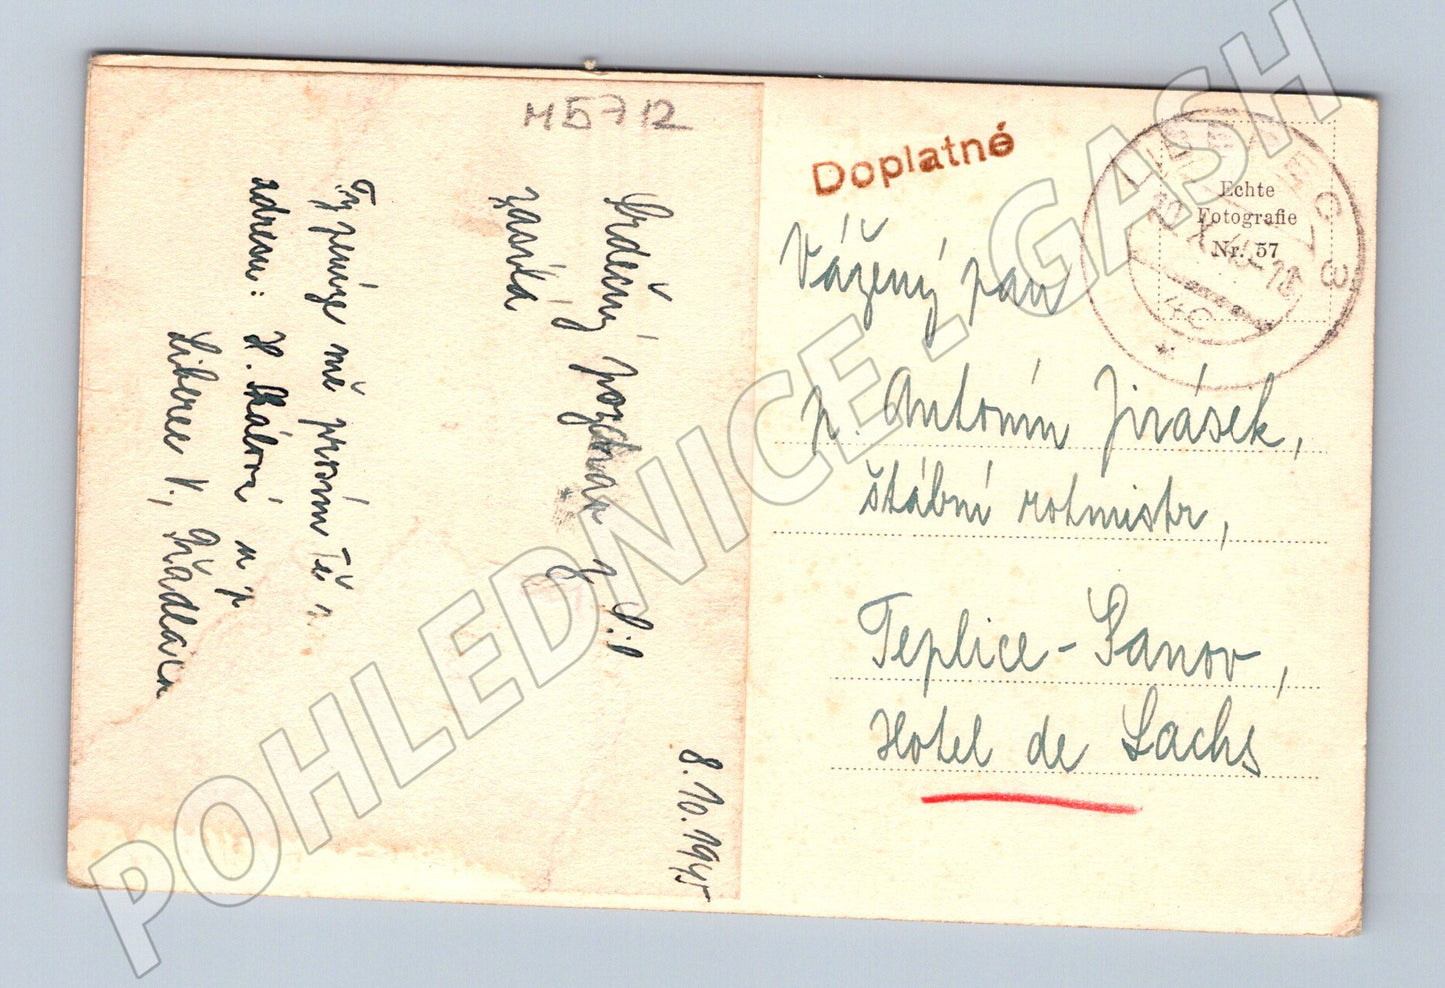 M5712
Srdečný pozdrav
zasílá
8.10.1945
Ty peníze mě prosím Tě
adresu: H. Skálová
Liberec V.,
Doplatné
LIBEREC 3
Echte
Fotografie
Nr. 57
Vážený pan
p. Antonín Jirásek,
štábní rotmistr,
Teplice-Šanov,
Hotel de Sachs
POHLEDNICE - GASH